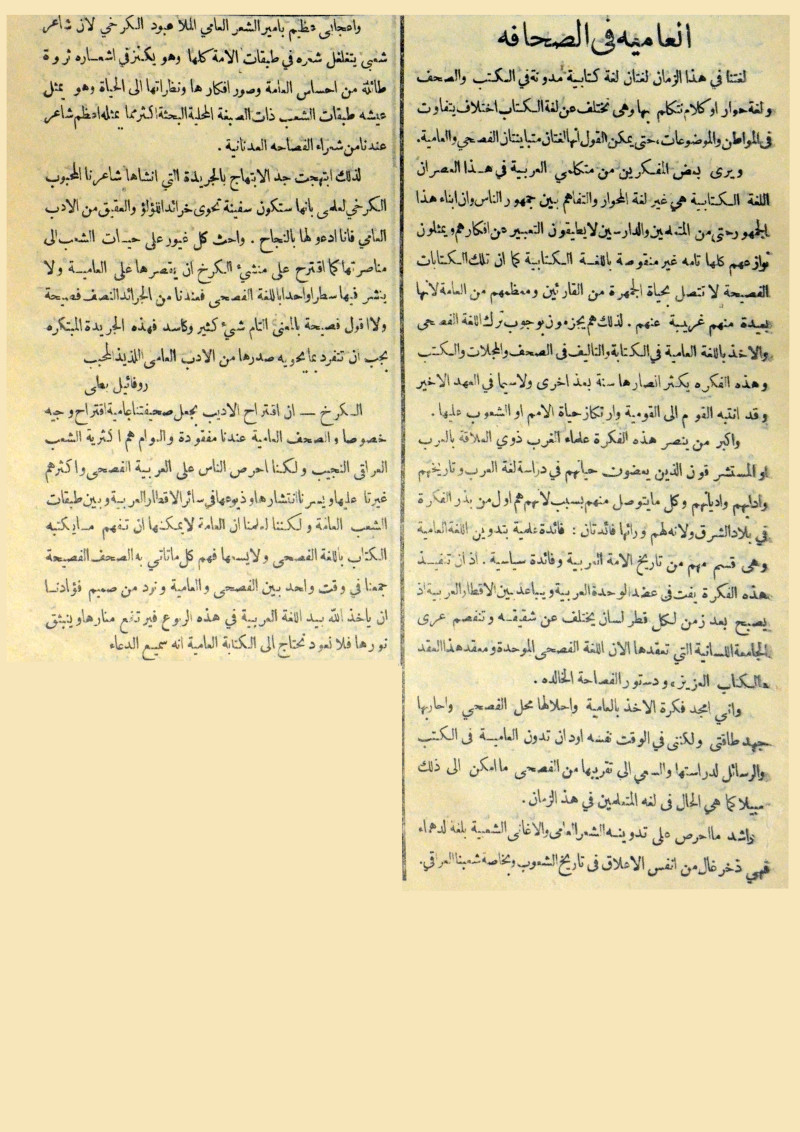 العاميه في الصحافه
لغتنا في هذا الزمان لغتان لغة كتابية مدونة في الكتب والصحف
ولغة حوار او كلام نتكلم بها وهي تختلف عن لغة الكتاب اختلاف يتفاوت
في المواطن والموضوعات، حتى يمكن القول انها لغتان متباينتان الفصحي والعامية.
ويرى بعض المفكرين من متكلمي العربية في هذا العصر ان
اللغة الكتابية هي غير لغة الحوار والتفاهم بين جمهور الناس وان ابناء هذا
الجمهور حتى من المتعلمين والدارسين لا يطيقون التعبير عن افكارهم ويمثلون
نوازعهم كلها تامه غير منقوصة باللغة الكتابية كما ان تلك الكتابات
الفصيحة لا تتصل بحياة الجمهرة من القارئين ومعظمهم من العامة لانها
بعيدة منهم غريبة عنهم . لذلك هم يجزمون بوجوب ترك اللغة الفصحى
والاخذ باللغة العامية في الكتابة والتاليف في الصحف والمجلات والكتب
وهذه الفكره يكثر انصارها سنة بعد اخرى ولا سيما في العهد الاخير
وقد انتبه القوم الى القومية وارتكاز حياة الامم او الشعوب عليها .
واكبر من ينصر هذه الفكرة علماء الغرب ذوي العلاقة بالعرب
او المستشرقون الذين يمضون حياتهم في دراسة لغة العرب وتاريخهم
وادابهم وادياتهم وكل ما يتوصل منهم بسبب لانهم هم اول من بذر الفكرة
في بلاد الشرق ولانه لهم ورائها فائدتان : فائدة علمية بتدوين اللغة العامية
وهي قسم مهم من تاريخ الامة العربية وفائدة سياسية . اذ ان تنفيذ
هذه الفكرة يفت في عضد الوحدة العربية ويباعد بين الاقطار العربية اذ
يصبح بعد زمن لكل قطر لسان يختلف عن شقيقه وتنفصم عرى
الجامعة اللسانية التي تعقدها الان اللغة الفصحى الموحدة ومعقد هذا العقد
الكتاب العزيز، ودستور الفصاحة الخالده .
واني امجد فكرة الاخذ بالعامية واحلالها محل الفصحي واحاربها
جهد طاقتى ولكنني في الوقت نفسه اود ان تدون العامية فى الكتب
والرسائل لدراستها والسعي الى تقريبها من الفصحى ما امكن الى ذلك
سبيلا كما هي الحال فى لغه المتعلمين في هذ الزمان .
واشد ما احرص على تدوينه الشعر العامى والاغانى الشعبية بلغة الدهماء
فهي ذخر غال من انفس الاعلاق فى تاريخ الشعوب وبخاصة شعبنا العراقي.
واعجابى عظيم بامير الشعر العامي الملا عبود الكرخي لان شاعر
شعبى يتغلغل شعره في طبقات الامة كلها وهو يكتنز في اشعاره ثروة
طائلة من احساس العامة وصور افكارها ونظاراتها الى الحياة وهو يمثل
عيشه طبقات الشعب ذات الصبغة المحلية البحتة اكثر مما يمثله اعظم شاعر
عندنا من شعراء الفصاحه العدنانية .
لذلك ابتهجت جد الابتهاج بالجريدة التي انشاها شاعرنا المحبوب
الكرخي لعلمى بانها ستكون سفينة تحوى خرائد اللؤلؤ والعقيق من الادب
العامي فانا ادعو لها بالنجاح . واحث كل غيور على حيات الشعب الى
مناصرتها كما اقترح على منشئ الكرخ ان يقصرها على العامية ولا
ينشر فيها سطرا واحدا باللغة الفصحى فعندنا من الجرائد النصف فصيحة
ولا اقول فصيحة بالمعنى التام شيئ كثير وكاسد فهذه الجريدة المبتكره
يجب ان تنفرد بما يحويه صدرها من الادب العامى اللذيذ المحبب
روفائيل بطى
الكرخ — ان اقتراح الاديب بجعل صحيفتنا عامية اقتراح وجيه
خصوصا والصحف العامية عندنا مفقودة والعوام هم اكثرية الشعب
العراقى النجيب ولكننا احرص الناس على العربية الفصحى واكثرهم
غيرتا عليها ويسرنا انتشارها وذيوعها في سائر الاقطار العربية وبين طبقات
الشعب العامة ولكننا لعلمنا ان العامة لا يمكنها ان تفهم مايكتبه
الكتاب باللغة الفصحى ولا يسعها فهم كل ماتاتي به الصحف الفصيحة
جمعنا في وقت واحد بين الفصحى والعامية ونود من صميم فؤادنا
ان ياخذ الله بيد اللغة العربية في هذه الربوع فيرتفع منارها وينبثق
نورها فلا نعود نحتاج الى الكتابة العامية انه سميع الدعاء